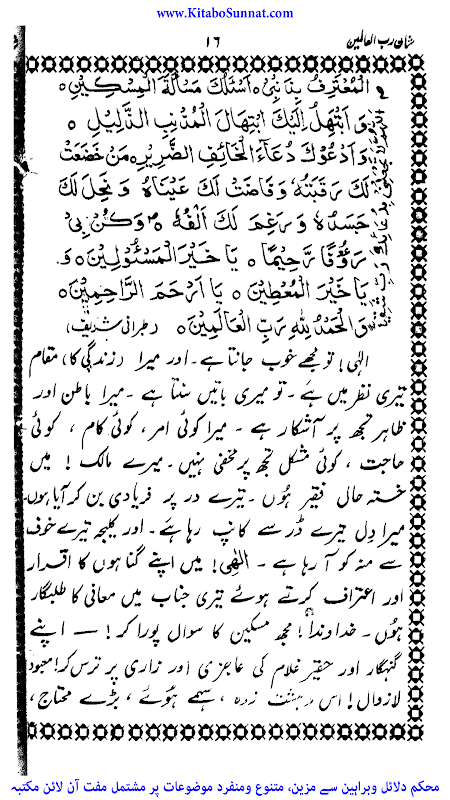 www.KitaboSunnat.com
شان رب العالمین
۱۶
الْمُعْتَرِفُ بِذَنْبِیْ ہ اَسْئَلُكَ مَسْأَلَةَ الْمِسْكِیْنِ ہ
وَ اَبْتَهِلُ اِلَیْكَ ابْتِهَالَ الْمُذْنِبِ الذَّلِیْلِ ہ
وَ اَدْعُوْكَ دُعَآءَ الْخَائِفِ الضَّرِیْرِ ہ مَنْ خَضَعَتْ
لَكَ رَقَبَتُهٗ وَ فَاضَتْ لَكَ عَیْنَاهُ وَ نَحِلَ لَكَ
جَسَدُهٗ وَ رَغِمَ لَكَ اَنْفُهٗ وَ كُنْ بِیْ
رَءُوْفًا رَّحِیْمًا ہ یَا خَیْرَ الْمَسْئُوْلِیْنَ ہ وَ
یَا خَیْرَ الْمُعْطِیْنَ ہ یَا اَرْحَمَ الرَّاحِمِیْنَ ہ
وَ الْحَمْدُ لِلّٰهِ رَبِّ الْعَالَمِیْنَ ہ (طبرانی شریف)
الٰہی! تو مجھے خوب جانتا ہے۔ اور میرا (زندگی کا) مقام
تیری نظر میں ہے۔ تو میری باتیں سنتا ہے۔ میرا باطن اور
ظاہر تجھ پر آشکار ہے۔ میرا کوئی امر، کوئی کام، کوئی
حاجت، کوئی مشکل تجھ پر مخفی نہیں۔ میرے مالک! میں
خستہ حال فقیر ہُوں۔ تیرے در پر فریادی بن کر آیا ہوں
میرا دِل تیرے ڈر سے کانپ رہا ہے۔ اور کلیجہ تیرے خوف
سے منہ کو آ رہا ہے۔ الٰھی! میں اپنے گناہوں کا اقرار
اور اعتراف کرتے ہوئے تیری جناب میں معافی کا طلبگار
ہوُں۔ خداوندا! مجھ مسکین کا سوال پورا کر! — اپنے
گنہگار اور حقیر غلام کی عاجزی اور زاری پر ترس کر! معبود
لازوال! اس دہشت زدہ، سہمے ہوئے، بڑے محتاج،
محکم دلائل وبراہین سے مزین، متنوع ومنفرد موضوعات پر مشتمل مفت آن لائن مکتبہ